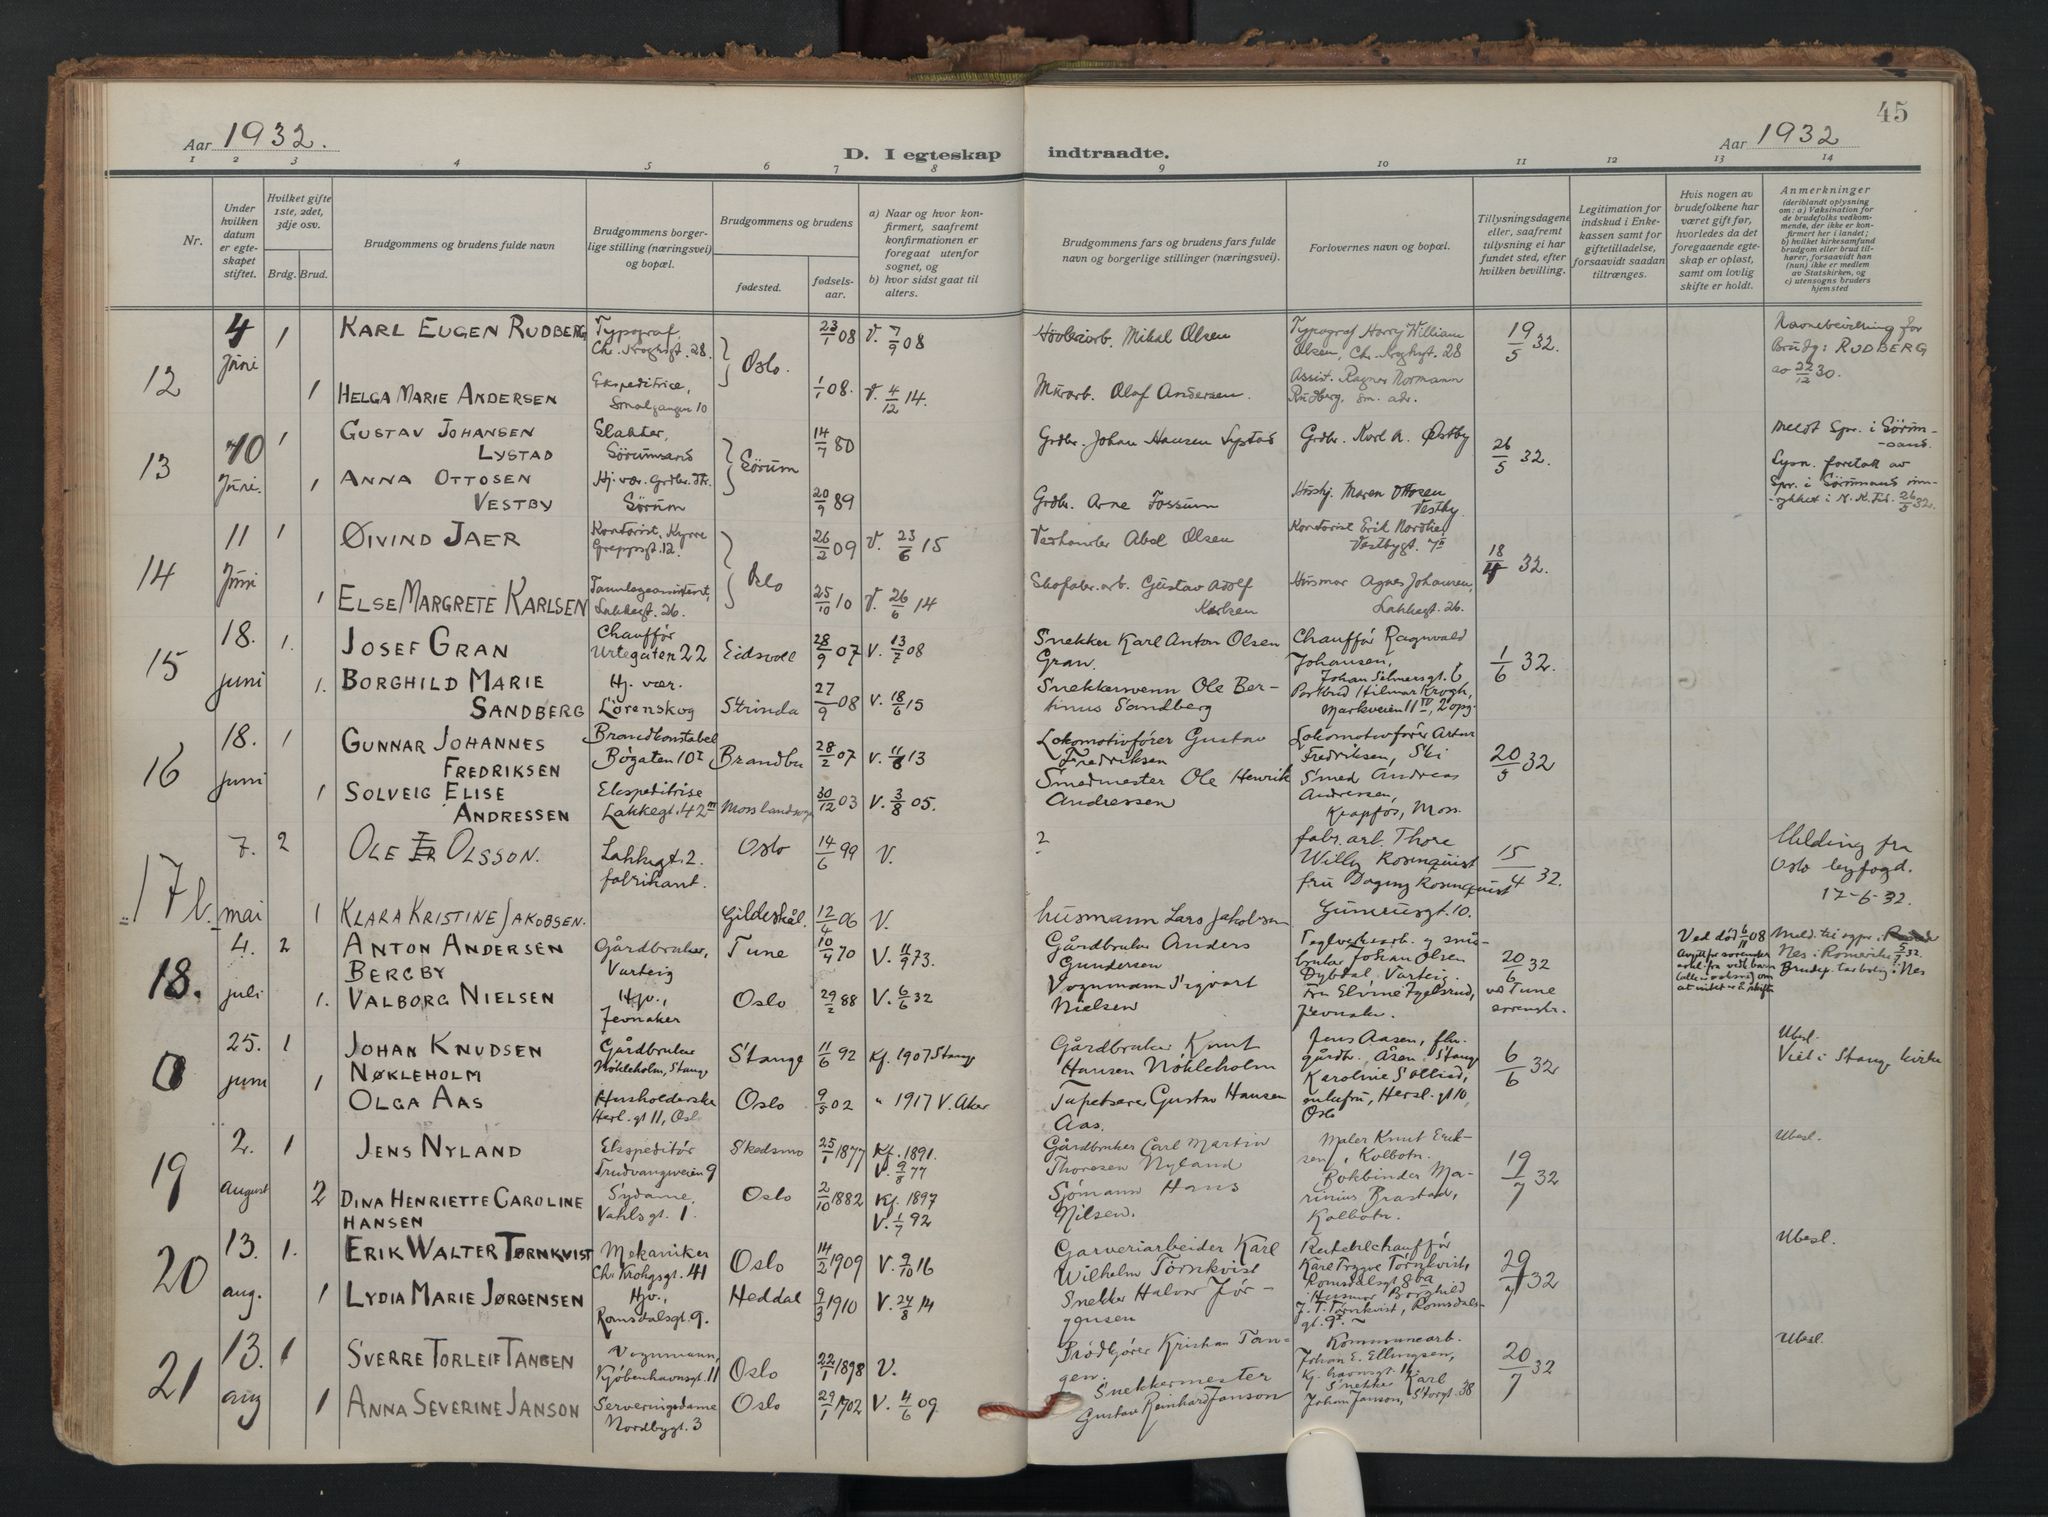 45
Aar 1932.
Aar 1932
D. I egteskap indtraadte.
1 2 3 4 5 6 7 8 9 10 11 12 13 14
Nr.
Under hvilken datum er egteskapet stiftet.
Hvilket gifte 1ste, 2det, 3dje osv.
Brdg. Brud.
Brudgommens og brudens fulde navn
Brudgommens borgerlige stilling (næringsvei) og bopæl.
Brudgommens og brudens
fødested.
fødselsaar.
a) Naar og hvor konfirmert, saafremt konfirmationen er foregaat utenfor sognet, og
b) hvor sidst gaat til alters.
Brudgommens fars og brudens fars fulde navn og borgerlige stillinger (næringsvei).
Forlovernes navn og bopæl.
Tillysningsdagene eller, saafremt tillysning ei har fundet sted, efter hvilken bevilling.
Legitimation for indskud i Enkekassen samt for giftetilladelse, forsaavidt saadan tiltrænges.
Hvis nogen av brudefolkene har været gift før, hvorledes da det foregaaende egteskap er opløst, samt om lovlig skifte er holdt.
Anmerkninger
(deriblandt oplysning om: a) Vaksination for de brudefolks vedkommende, der ikke er konfirmert her i landet; b) hvilket kirkesamfund brudgom eller brud tilhører, forsaavidt han (hun) ikke er medlem av Statskirken, og c) utensogns bruders hjemsted
12 4 Juni 1 KARL EUGEN RUDBERG Typograf, Ch. Kroghsgt. 28. Oslo. 23/1 08 V. 7/9 08 Mikal Olsen Typograf Harry William Olsen, Ch. Kroghgt. 28 19/5 32. Navnebevilling for Brudg: RUDBERG av 22/12 30.
1 HELGA MARIE ANDERSEN Ekspeditrice, Smalgangen 10 1/1 08. V. 4/12 14. Murarb. Olaf Andersen. Assist. Ragnar Normann Rudberg, sm. adr.
13 10 Juni. 1 GUSTAV JOHANSEN LYSTAD Slakter, Sørumsand Sørum 14/7 80 Grdbr. Johan Hansen Lystad Grdbr. Karl A. Østby 26/5 32. Meldt Spr. i Sørumsand.
1 ANNA OTTOSEN VESTBY Hj. vær. Grdbr. dtr. Sørum 20/9 89 Grdbr. Arne Fossum Hushj. Maren Ottosen Vestby. Lysn. foretatt av Spr. i Sørumsand 26/5 32.
14 11 Juni 1 ØIVIND JAER Kontorist, Kyrre Greppsgt. 12. Oslo 26/2 09 V. 23/6 15 Abel Olsen Kontorist Erik Vestbygt. 18/4 32.
1 ELSE MARGRETE KARLSEN Tannlegeassistent, Lakkegt. 26. 25/10 10 V. 26/6 14 Skofabr. arb. Gustav Adolf Karlsen Husmor Agnes Johansen, Lakkegt. 26.
15 18. juni 1. JOSEF GRAN Chauffør Urtegaten 22 Eidsvoll 28/9 07 V. 13/7 08 Snekker Karl Anton Olsen Gran. Chauffør Ragnvald Johansen, Johan Selmersgt. 6 1/6 32.
1. BORGHILD MARIE SANDBERG Hj. vær. Lørenskog Strinda 27/9 08 V. 18/6 15 Snekkersvenn Ole Bertinus Sandberg Hilmar Krogh, Markveien 11 IV, 2 opg.
16 18. juni 1 GUNNAR JOHANNES FREDRIKSEN Brandkonstabel Bøgaten 10 Brandbu 28/2 07 V. 11/8 13 Lokomotivfører Gustav Fredriksen Lokomotivfører Artur Fredriksen, Ski 20/5 32
1 SOLVEIG ELISE ANDRESSEN Ekspeditrise Lakkegt. 42 III Moss landsogn 30/12 03 V. 3/8 05. Smedmester Ole Henrik Andressen Smed Andreas Andressen, Krapfos, Moss.
17 b. 7. mai 2 OLE OLSSON. Lakkegt. 2. fabrikant. Oslo 14/6 99 V. ? fabr. arb. Thore Willy Rosenquist fru Dagny Rosenquist Gumrusgt. 10. 15/4 32. Melding fra Oslo byfogd. 17-6-32.
1 KLARA KRISTINE JAKOBSEN. Gildeskål. 12/4 06 V. husmann Lars Jakobsen
18. 4. juli 2 ANTON ANDERSEN BERGBY Gårdbruker, Varteig Tune 10/4 70 V. 11/9 73. Gårdbruker Anders Gundersen Teglverksarb. og småbruker Johan Olsen Dybdal, Varteig. 20/6 32 ved Tune Ved død 6/11 08
1. VALBORG NIELSEN Hjv., Jevnaker Oslo 29/2 88 V. 6/6 32 Vognmann Sigvart Nielsen Fru Elvine Jevnaker.
0 25. juni 1 JOHAN KNUDSEN NØKLEHOLM Gårdbruker Nökleholm, Stange Stange 11/6 92 Kf. 1907 Stange Gårdbruker Knut Hansen Nökleholm Jens Aasen, gårdbr. Åsen, Stange 6/6 32 Ubesl. Viet i Stange kirke
1 OLGA AAS Husholderske Herl. gt 11, Oslo Oslo 9/5 02 " 1917 V. Aker Tapetserer Gustav Hansen Aas. Karoline enkefru, Hersl. gt 10, Oslo
19 2. august 1 JENS NYLAND Ekspeditör Trudvangveien 9 Skedsmo 25/1 1877 Kf. 1891. V. 9/8 77 Gårdbruker Carl Martin Thoresen Nyland Maler Knut Eriksen, Kolbotn. 19/7 32 Ubesl.
2 DINA HENRIETTE CAROLINE HANSEN Sydame, Vahlsgt. 1. Oslo 2/10 1882 Kf. 1897 V. 1/7 92 Sjömann Hans Nilsen. Bokbinder Marinius Brastad, Kolbotn.
20 13. aug. 1. ERIK WALTER TØRNKVIST Mekaniker Chr. Krohgsgt. 41 Oslo 14/2 1909 V. 9/10 16 Garveriarbeider Karl Wilhelm Törnkvist Karl Trygve Törnkvist, Romsdalsgt 29/7 32 Ubesl.
1 LYDIA MARIE JØRGENSEN Hjv., Romsdalsgt. 9. Heddal 9/3 1910 V. 24/8 14 Snekker Halvor Jörgensen Husmor Borghild J. T. Törnkvist, Romsdalsgt. 9
21 13. aug 1 SVERRE TORLEIF TANGEN Vognmann, Kjøbenhavnsgt. 11 Oslo 22/1 1898 V. Brödkjörer Kristian Tangen. Kommunearb. Johan E. Ellingsen, Kj. havnsgt. 11 20/7 32 Ubesl.
1 ANNA SEVERINE JANSON Serveringsdame Nordbygt. 3 Oslo 29/1 1902 V. 4/6 09 Snekkermester Gustav Reinhard Janson Snekker Karl Johan Janson, Storgt. 38